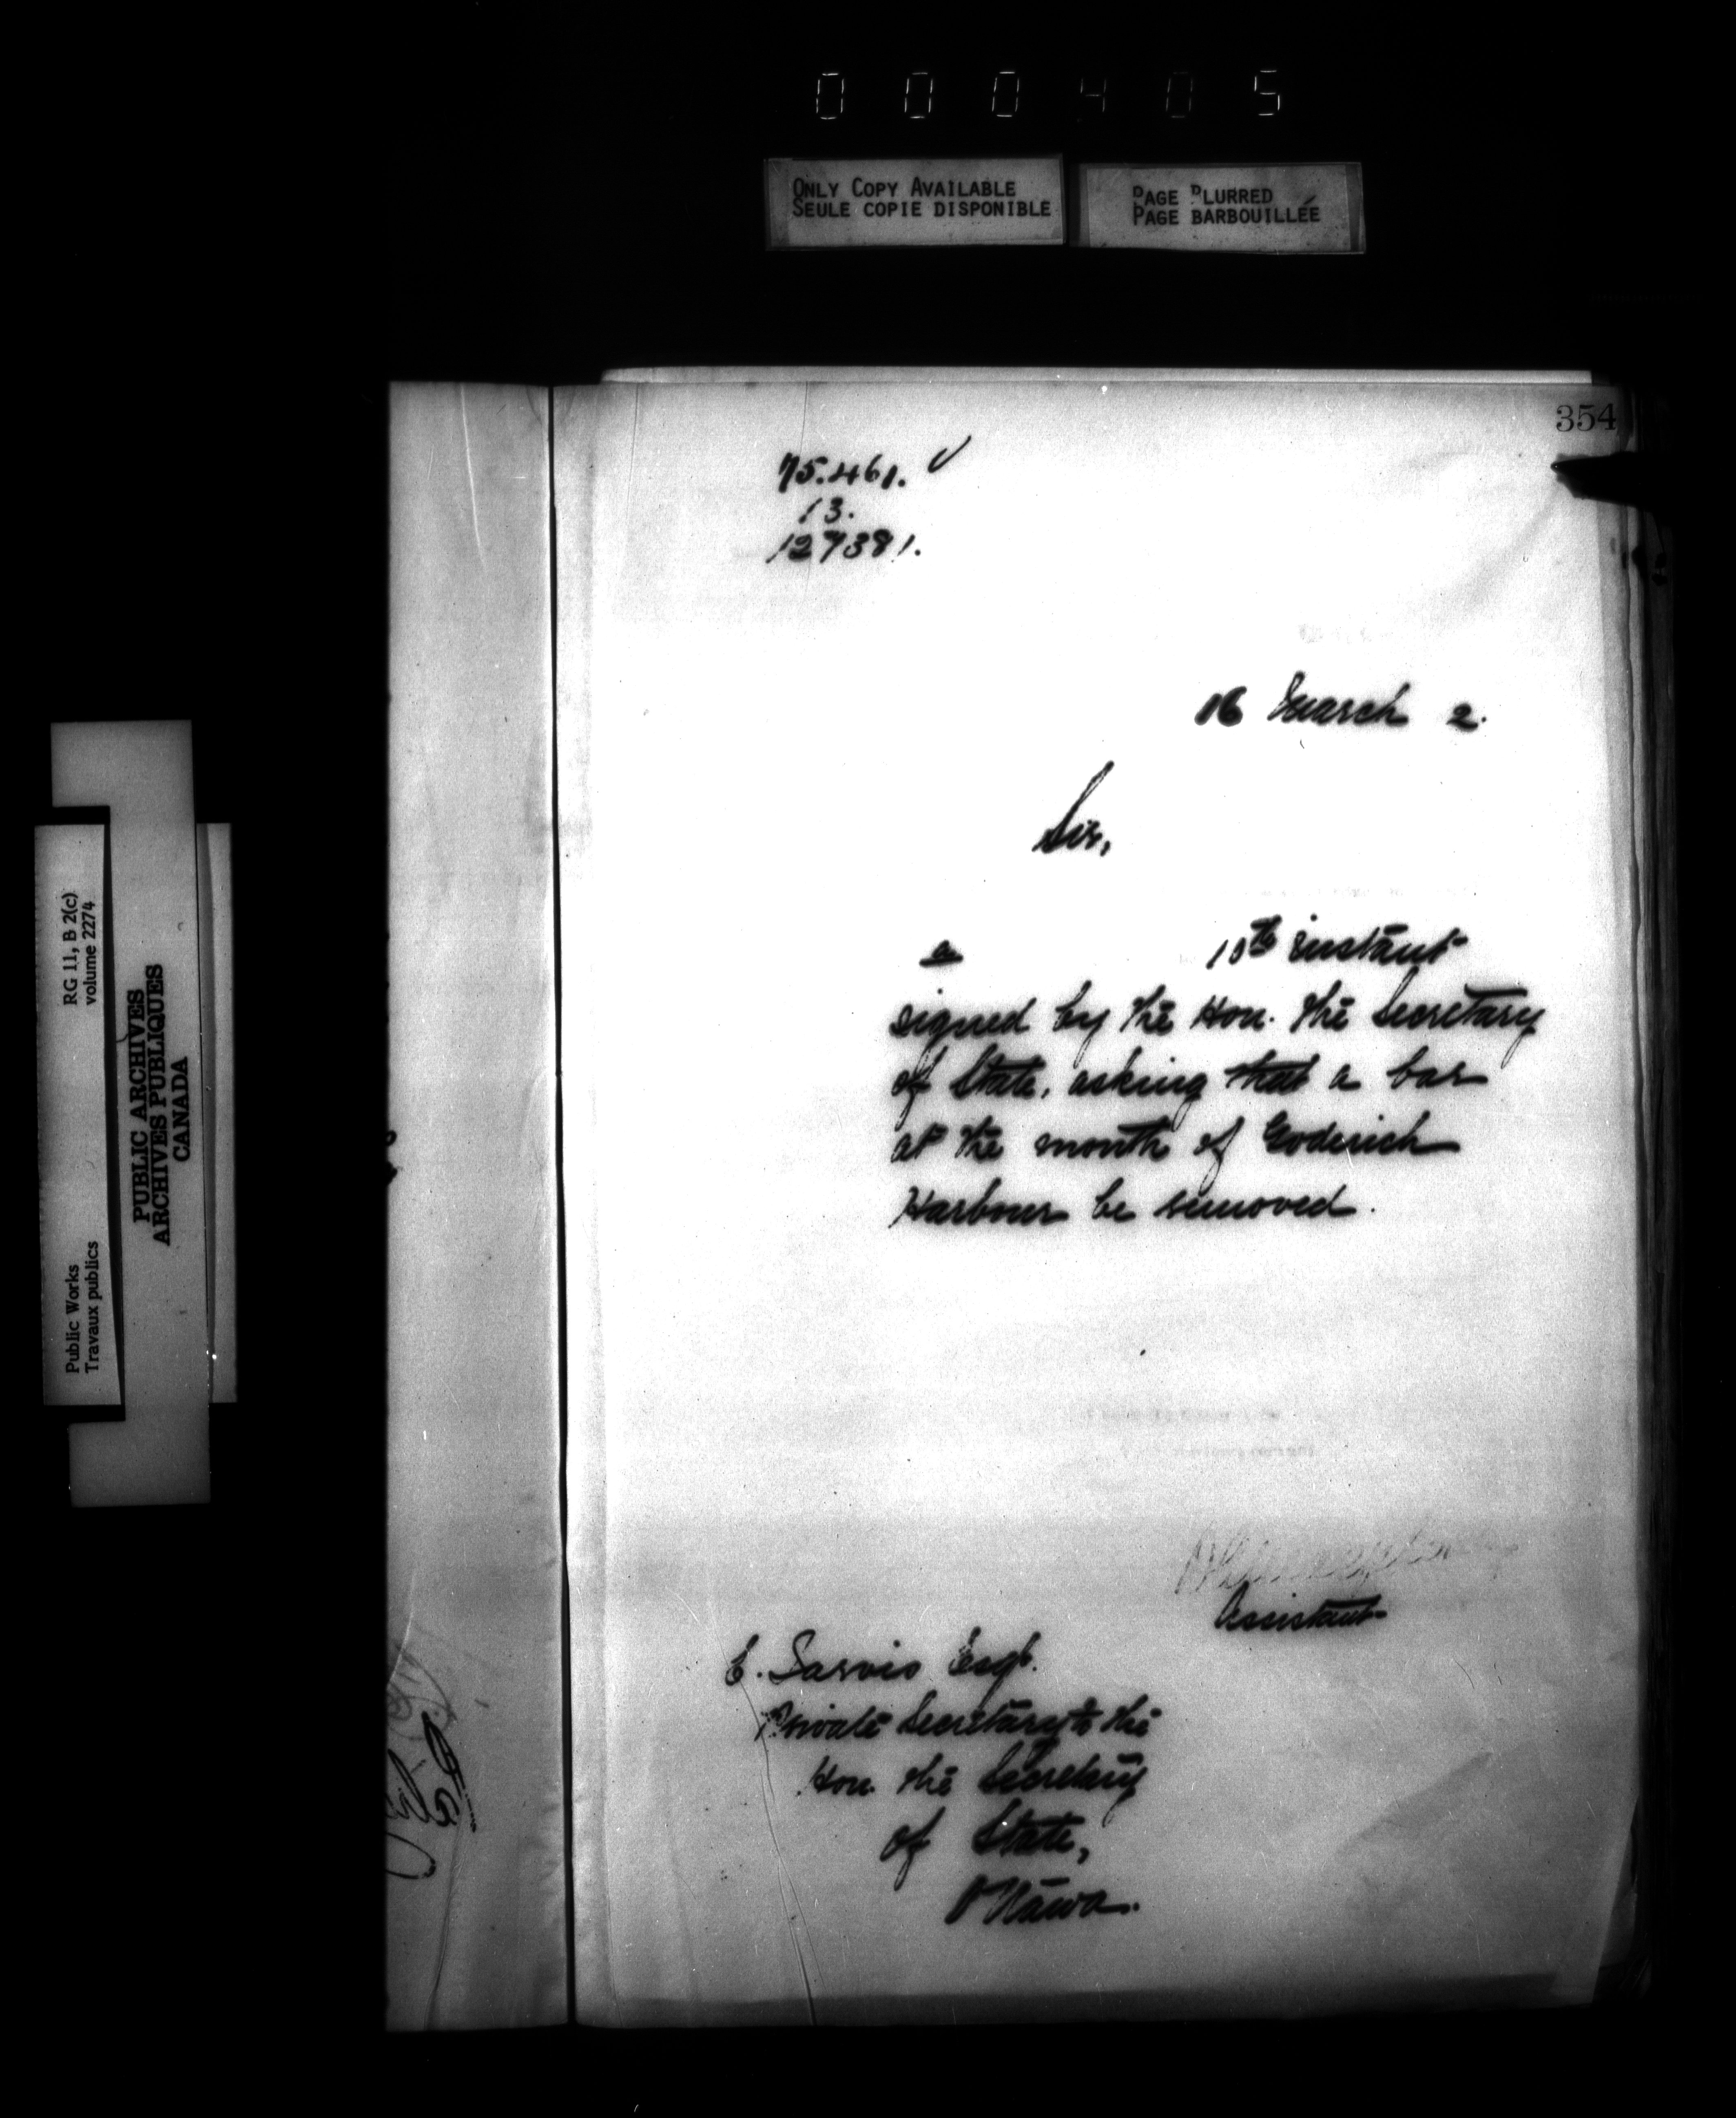 0 0 0 4 0 5
ONLY COPY AVAILABLE
SEULE COPIE DISPONIBLE
PAGE BLURRED
PAGE BARBOUILLÉE
354
75.461.
13.
127381.
16 March 2.
Sir,
a 10th instant
signed by the Hon. the Secretary
of State, asking that a bar
at the mouth of Goderich
Harbour be removed.
Assistant
C. Jarvis Esq.
Private Secretary to the
Hon. the Secretary
of State,
Ottawa.
RG 11, B 2(c)
volume 2274
PUBLIC ARCHIVES
ARCHIVES PUBLIQUES
CANADA
Public Works
Travaux publics